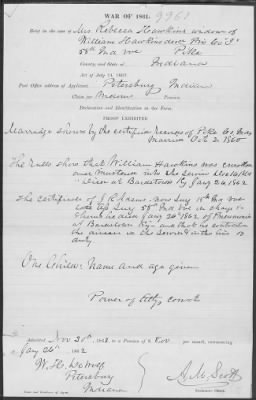 WAR OF 1861.
9961
Brief in the case of Mrs Rebecca Hawkins widow of
William Hawkins dec'd Priv Co "I"
58th Ind Vol Pike
County, and State of Indiana
Act of July 14, 1862.
Post Office address of Applicant, Petersburg Indiana
Claim for Widow's Pension.
Declaration and Identification in due Form.
PROOF EXHIBITED
Marriage shown by the certified record of Pike Co, Ind
Married Oct 2. 1860
The Rolls show that William Hawkins was enrolled
and Mustered into the Service
Died at Bardstown Ky Jany 26 1862
The Certificate of J R Adams Surg 15th Ind Vol
late Surg 58th Ind Vol in charge
he died Jany 26th 1862, of Pneumonia
at Bardstown Ky. and that he contracted
the disease in the Service & in the line of
duty.
One Child: Name and age given
Power of Atty
Admitted Nov 30th, 186 to a Pension of $ 8.00 per month, commencing
Jany 26th 1862
W. H. DeWolf
Petersburg
Indiana
A. M. Scott
Examining Clerk.
Name and Residence of Agent.